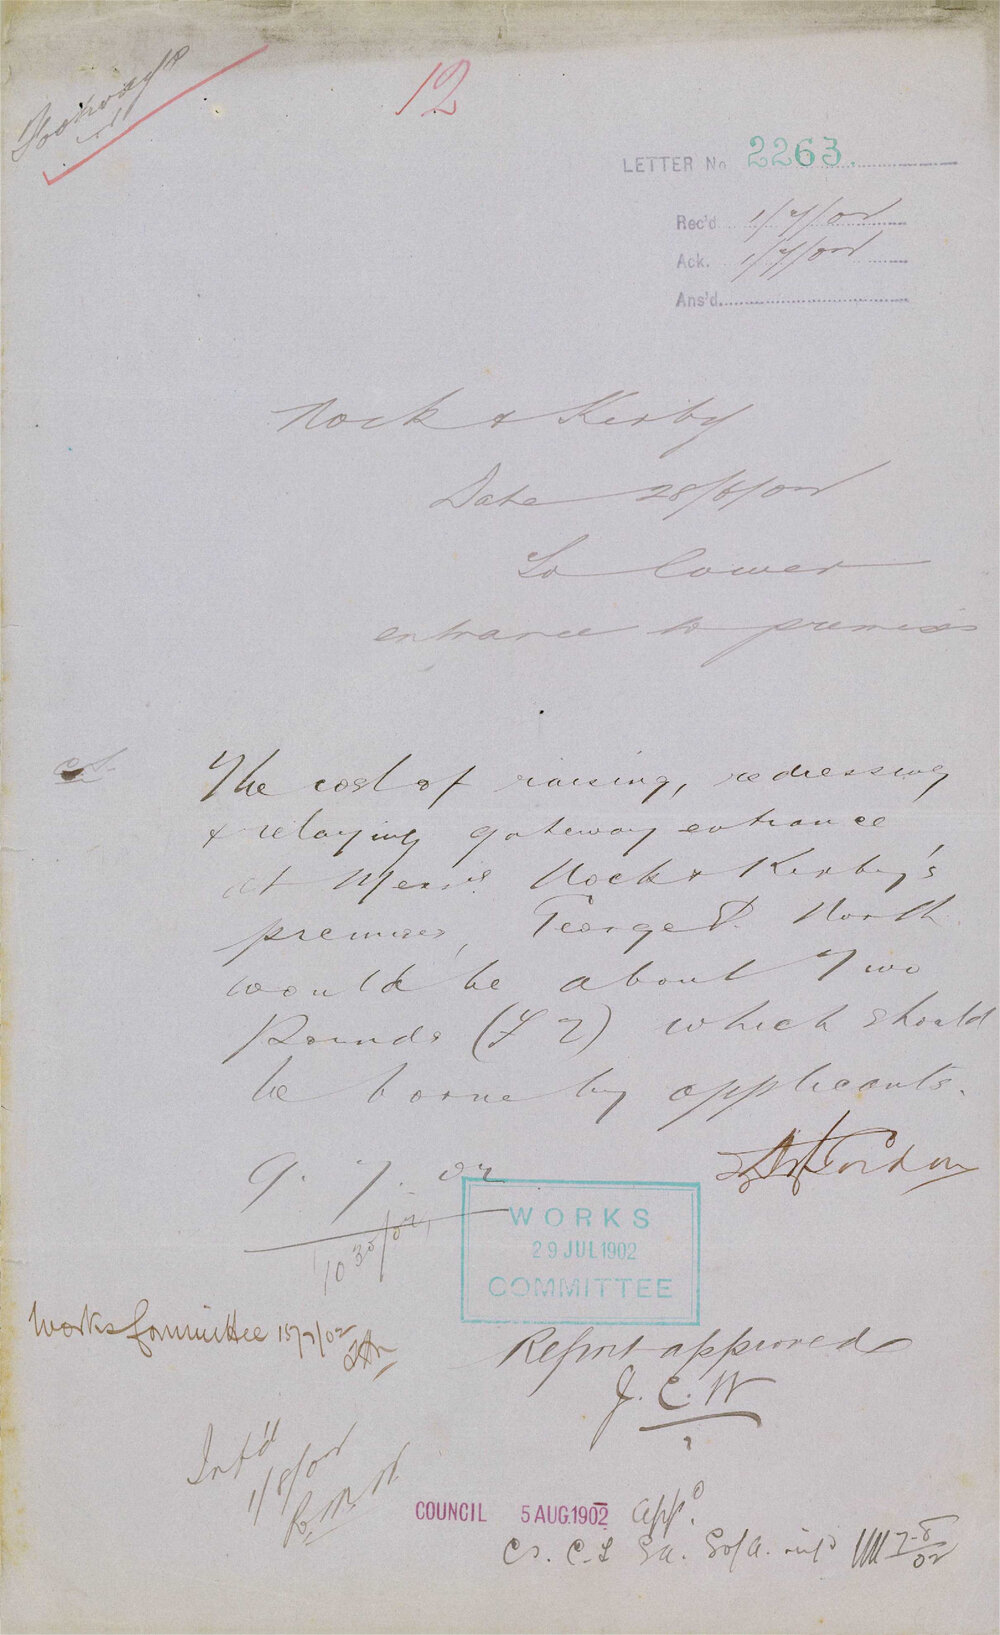 Footways
12
LETTER No 2263.
Rec'd 1/7/02
Ack. 1/7/02
Ans'd.
Nock & Kirby
Date 28/6/02
To lower
entrance to premises
The cost of raising, redressing
& relaying gateway entrance
at Messrs. Nock & Kirby's
premises, George St. North
would be about Two
Pounds (£2) which should
be borne by applicants.
9.7.02
WORKS
29 JUL 1902
COMMITTEE
Works Committee 15/7/02
Report approved
J. C. W
Int'd
1/8/02
COUNCIL 5 AUG. 1902 appd.
C.S. C.S